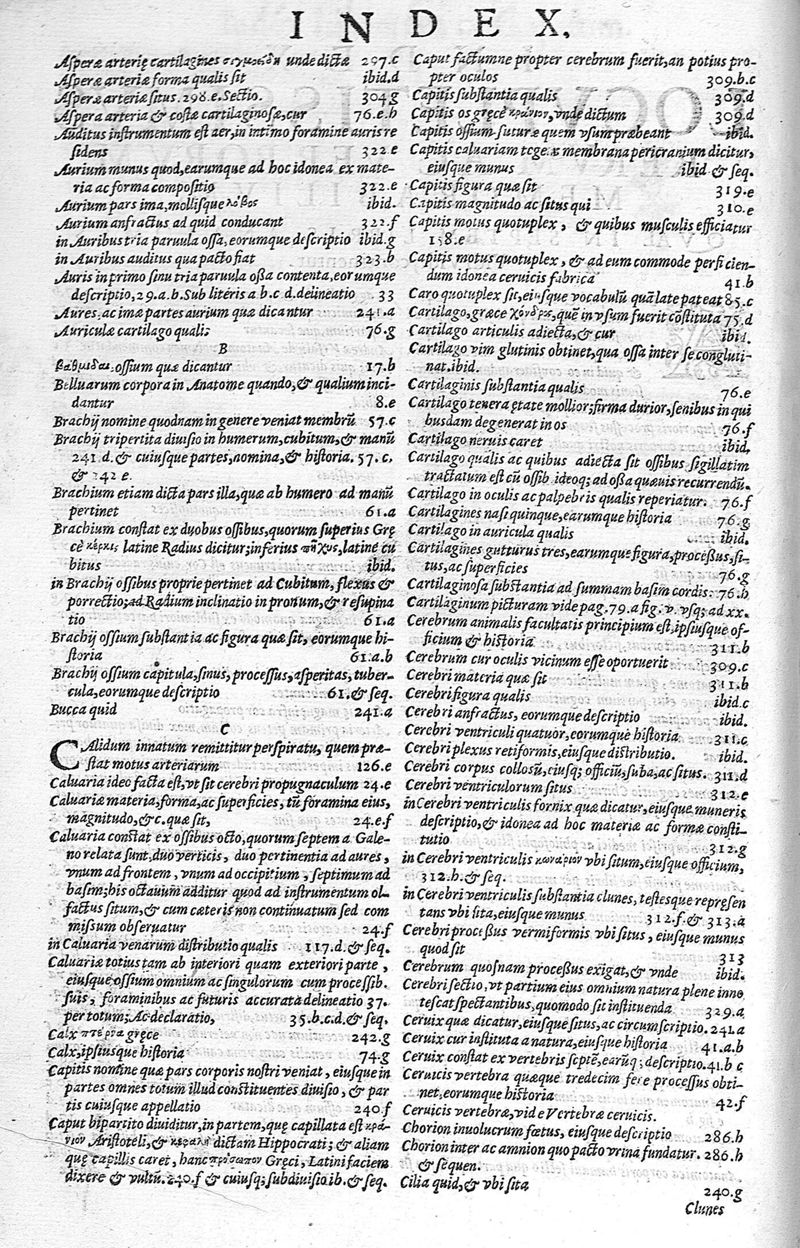 INDEX.
Asperæ arterię cartilagines σιγμοειδη unde dictæ 297.c
Asperæ arteriæ forma qualis sit ibid.d
Asperæ arteriæ situs. 298.e. Sectio. 304g
Aspera arteria & costæ cartilaginosæ, cur 76.e.h
Auditus instrumentum est aer, in intimo foramine auris re
sidens 322.e
Aurium munus quod, earumque ad hoc idonea ex mate-
ria ac forma compositio 322.e
Aurium pars ima, mollisque λοβος ibid.
Aurium anfractus ad quid conducant 322.f
in Auribus tria paruula ossa, eorumque descriptio ibid.g
in Auribus auditus qua pacto fiat 323.b
Auris in primo sinu tria paruula ossa contenta, eorumque
descriptio, 29.a.b. Sub literis a b.c d. delineatio 33
Aures, ac imæ partes aurium quæ dicantur 241.a
Auriculæ cartilago qualis 76.g
B
βαθμιδαι, ossium quæ dicantur 17.b
Belluarum corpora in Anatome quando, & qualium inci-
dantur 8.e
Brachij nomine quodnam in genere veniat membrũ 57.c
Brachij tripertita diuisio in humerum, cubitum, & manũ
241 d. & cuiusque partes, nomina, & historia. 57.c.
& 242 e.
Brachium etiam dicta pars illa, quæ ab humero ad manũ
pertinet 61.a
Brachium constat ex duobus ossibus, quorum superius Grę
cè κερκις latine Radius dicitur; inferius πῆχυς, latine cu
bitus ibid.
in Brachij ossibus proprie pertinet ad Cubitum, flexus &
porrectio; ad Radium inclinatio in pronum, & resupina
tio 61.a
Brachij ossium substantia ac figura quæ sit, eorumque hi-
storia 61.a.b
Brachij ossium capitula, sinus, processus, asperitas, tuber-
cula, eorumque descriptio 61. & seq.
Bucca quid 241.a
C
CAlidum innatum remittitur perspiratu, quem præ-
stat motus arteriarum 126.e
Caluaria ideo facta est, vt sit cerebri propugnaculum 24.e
Caluariæ materia, forma, ac superficies, tũ foramina eius,
magnitudo, & c. quæ sit, 24.e.f
Caluaria constat ex ossibus octo, quorum septem a Gale-
no relata sunt, duo verticis, duo pertinentia ad aures,
vnum ad frontem, vnum ad occipitium, septimum ad
basim; his octauum additur quod ad instrumentum ol-
factus situm, & cum cæteris non continuatum sed com
missum obseruatur 24.f
in Caluaria venarum distributio qualis 117.d. & seq.
Caluariæ totius tam ab interiori quam exteriori parte,
eiusque ossium omnium ac singulorum cum processib.
suis, foraminibus ac futuris accurata delineatio 37.
per totum; Ac declaratio, 35.b.c.d. & seq.
Calx πτέρνα gręce 242.g
Calx, ipsiusque historia 74.g
Capitis nomine quæ pars corporis nostri veniat, eiusque in
partes omnes totum illud constituentes diuisio, & par
tis cuiusque appellatio 240.f
Caput bipartito diuiditur, in partem, quę capillata est κρά-
νιον Aristoteli, & κεφαλὴ dictam Hippocrati; & aliam
quę capillis caret, hanc πρόσωπον Gręci, Latini faciem
dixere & vultũ. 240.f & cuiusq; subdiuisio ib. & seq.
Caput factumne propter cerebrum fuerit, an potius pro-
pter oculos 309.b.c
Capitis substantia qualis 309.d
Capitis os grecè κρανίον, vnde dictum 309.d
Capitis ossium suturæ quem vsum præbeant ibid.
Capitis caluariam tegēs membrana pericranium dicitur,
eiusque munus ibid & seq.
Capitis figura quæ sit 319.e
Capitis magnitudo ac situs qui 310.e
Capitis motus quotuplex, & quibus musculis efficiatur
138.e
Capitis motus quotuplex, & ad eum commode perficien-
dum idonea ceruicis fabrica 41.b
Caro quotuplex sit, eiusque vocabulũ quã late pateat 85.c
Cartilago, græce χόνδρος, quē in vsum fuerit cõstituta 75.d
Cartilago articulis adiecta, & cur ibid.
Cartilago vim glutinis obtinet, qua ossa inter se congluti-
nat. ibid.
Cartilaginis substantia qualis 76.e
Cartilago tenera ętate mollior; firma durior, senibus in qui
busdam degenerat in os 76.f
Cartilago neruis caret ibid.
Cartilago qualis ac quibus adiecta sit ossibus sigillatim
tractatum est cũ ossib ideoq; ad ossa quæuis recurrendũ.
Cartilago in oculis ac palpebris qualis reperiatur. 76.f
Cartilagines nasi quinque, earumque historia 76.g
Cartilago in auricula qualis ibid.
Cartilagines gutturis tres, earumque figura, processus, si-
tus, ac superficies 76.g
Cartilaginosa substantia ad summam basim cordis. 76.h
Cartilaginum picturam vide pag. 79.a fig. v. vsq; ad xx.
Cerebrum animalis facultatis principium est, ipsiusque of-
ficium & historia 311.b
Cerebrum cur oculis vicinum esse oportuerit 309.c
Cerebri materia quæ sit 311.b
Cerebri figura qualis ibid.c
Cerebri anfractus, eorumque descriptio ibid.
Cerebri ventriculi quatuor, eorumque historia 311.c
Cerebri plexus retiformis, eiusque distributio. ibid.
Cerebri corpus collosũ, eiusq; officiũ, suba, ac situs. 311.d
Cerebri ventriculorum situs 312.e
in Cerebri ventriculis fornix quæ dicatur, eiusque muneris
descriptio, & idonea ad hoc materiæ ac formæ consti-
tutio 312.g
in Cerebri ventriculis κωνάριον vbi situm, eiusque officium,
312.h. & seq.
in Cerebri ventriculis substantia clunes, testesque represen
tans vbi sita, eiusque munus 312.f. & 313.a
Cerebri processus vermiformis vbi situs, eiusque munus
quod sit 313
Cerebrum quosnam processus exigat, & vnde ibid.
Cerebri sectio, vt partium eius omnium natura plene inno
tescat spectantibus, quomodo sit instituenda 329.a
Ceruix quæ dicatur, eiusque situs, ac circumscriptio. 241.a
Ceruix cur instituta a natura, eiusque historia 41.a.b
Ceruix constat ex vertebris septē, earũq; descriptio. 41.b c
Ceruicis vertebra quæque tredecim fere processus obti-
net, eorumque historia 42.f
Ceruicis vertebræ, vide Vertebræ ceruicis.
Chorion inuolucrum fœtus, eiusque descriptio 286.h
Chorion inter ac amnion quo pacto vrina fundatur. 286.h
& sequen.
Cilia quid, & vbi sita 240.g
Clunes